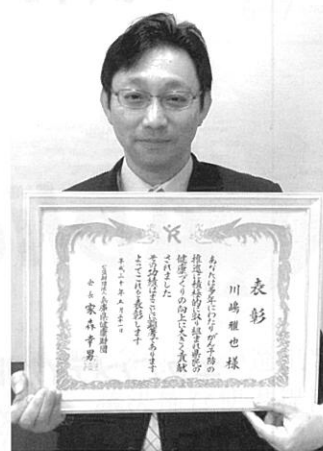 表彰
川嶋雅也 様
あなたは多年にわたりがん予防の
推進に積極的に取り組まれ県民の
健康づくりの向上に大きく貢献
されました
その功績はまことに顕著であります
よってこれを表彰します
平成三十年五月三十一日
公益財団法人 兵庫県健康財団
会長 家森幸男